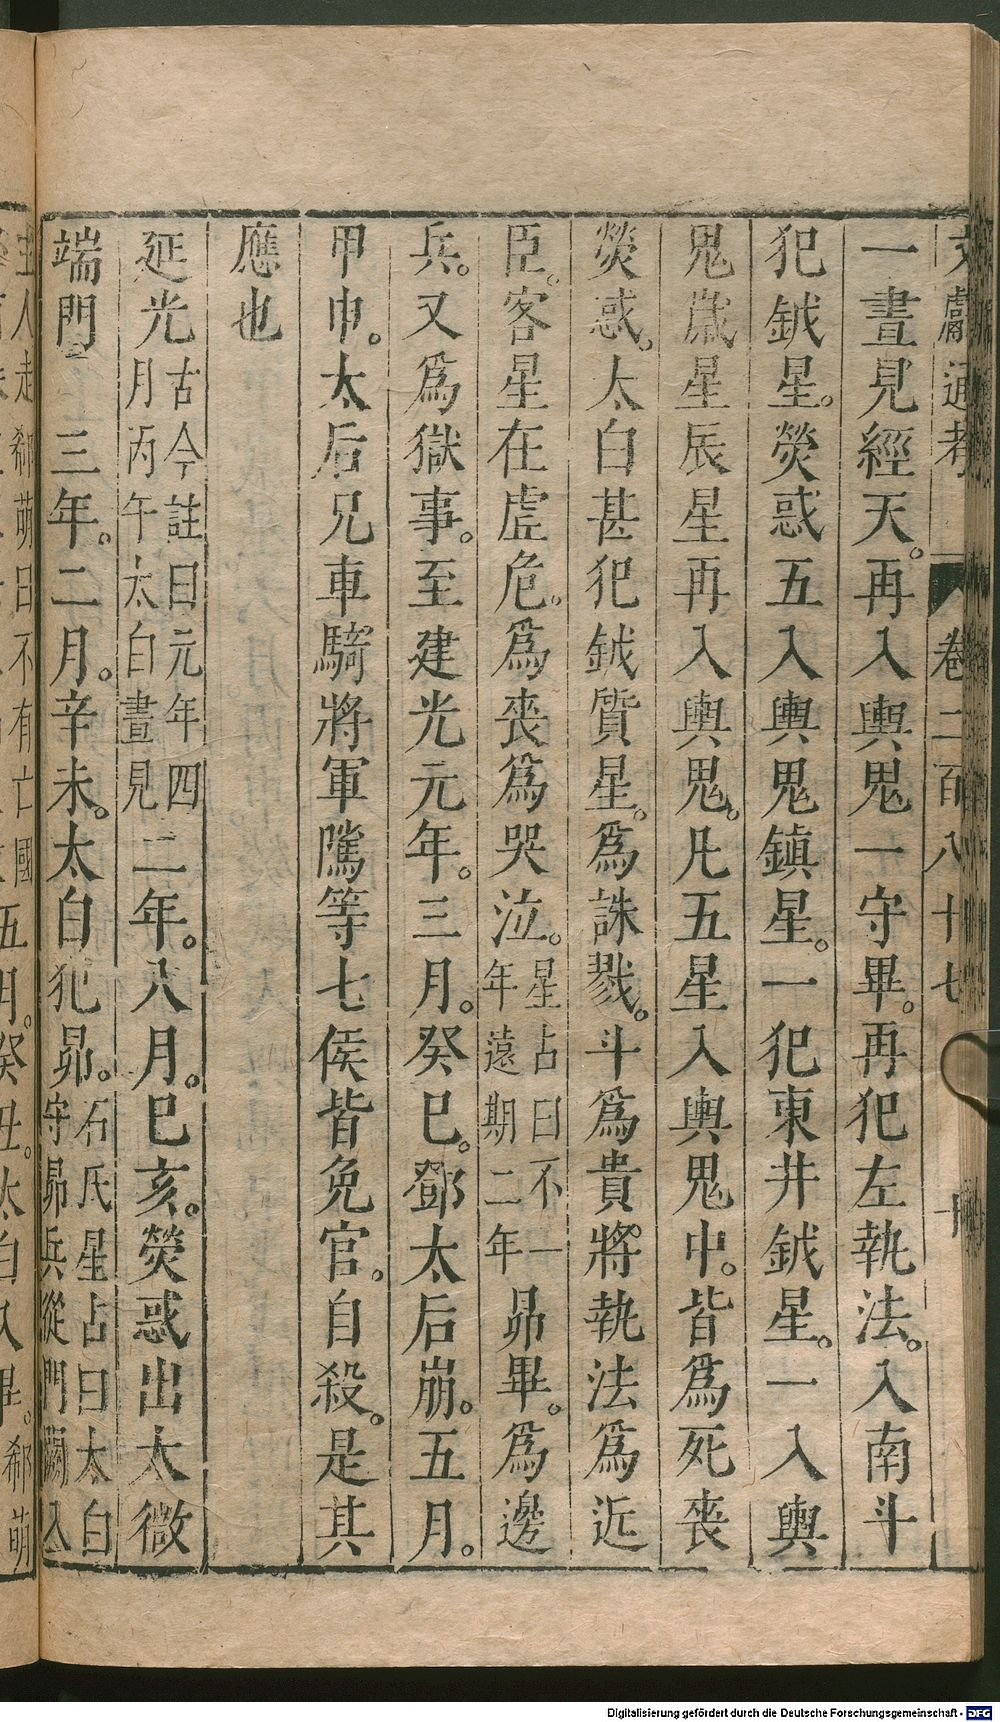 文獻通考 卷二百八十七 十
一晝見經天。再入輿鬼一守畢。再犯左執法。入南斗
犯鉞星。熒惑五入輿鬼鎮星。一犯東井鉞星。一入輿
鬼歲星辰星再入輿鬼。凡五星入輿鬼中。皆爲死喪
熒惑。太白甚犯鉞質星。爲誅戮。斗爲貴將執法爲近
臣。客星在虛危。爲喪爲哭泣。星占曰不一年遠期二年昴畢。爲邊
兵。又爲獄事。至建光元年。三月。癸巳。鄧太后崩。五月。
甲申。太后兄車騎將軍騭等七侯皆免官。自殺。是其
應也
延光古今註曰元年四月丙午太白晝見二年。八月。巳亥。熒惑出太微
端門 三年。二月。辛未。太白犯昴。石氏星占曰太白守昴兵從門闕入
主人走郗萌曰不有亡國五月。癸丑。太白入畢。郗萌
Digitalisierung gefördert durch die Deutsche Forschungsgemeinschaft - DFG